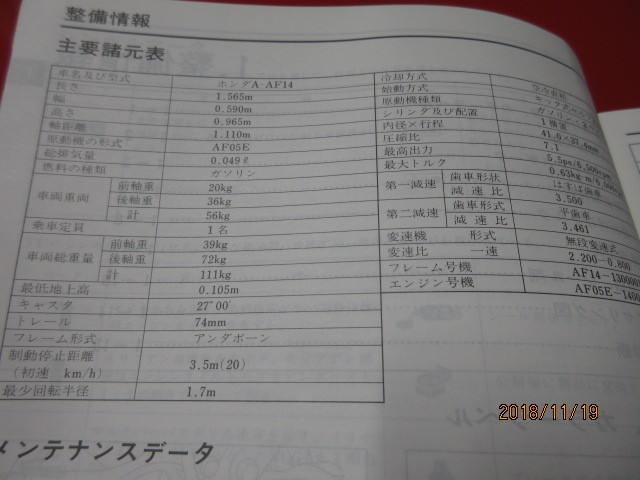 整備情報
主要諸元表
車名及び型式 ホンダA-AF14
長さ 1.565m
幅 0.590m
高さ 0.965m
軸距離 1.110m
原動機の形式 AF05E
総排気量 0.049ℓ
燃料の種類 ガソリン
車両重両 前軸重 20kg
後軸重 36kg
計 56kg
乗車定員 1名
車両総重量 前軸重 39kg
後軸重 72kg
計 111kg
最低地上高 0.105m
キャスタ 27°00′
トレール 74mm
フレーム形式 アンダボーン
制動停止距離 3.5m(20)
(初速 km/h)
最少回転半径 1.7m
冷却方式
始動方式
原動機種類
シリンダ及び配置
内径×行程
圧縮比 7.1
最高出力
最大トルク
第一減速 歯車形状 はすば歯車
減速比 3.500
第二減速 歯車形式 平歯車
減速比 3.461
変速機 形式 無段変速式
変速比 一速 2.200-0.800
フレーム号機
エンジン号機
メンテナンスデータ
2018/11/19